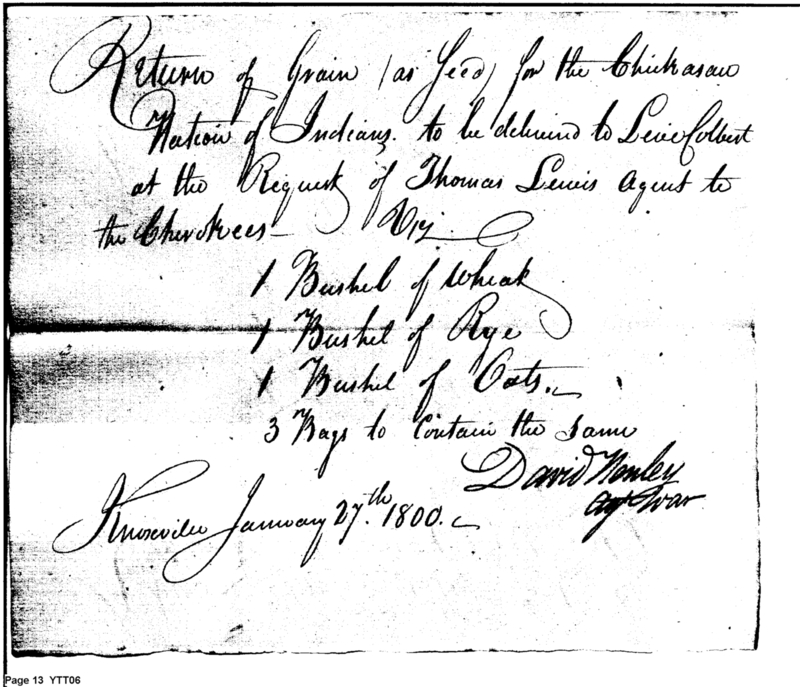 Return of Grain (as Seed) for the Chickasaw
Nation of Indians. to be delivered to Levie Colbert
at the Request of Thomas Lewis Agent to
the Cherokees — Viz
1 Bushel of Wheat
1 Bushel of Rye
1 Bushel of Oats.
3 Bags to Contain the Same
David Henley
Agt War
Knoxville January 27.th 1800.
Page 13 YTT06